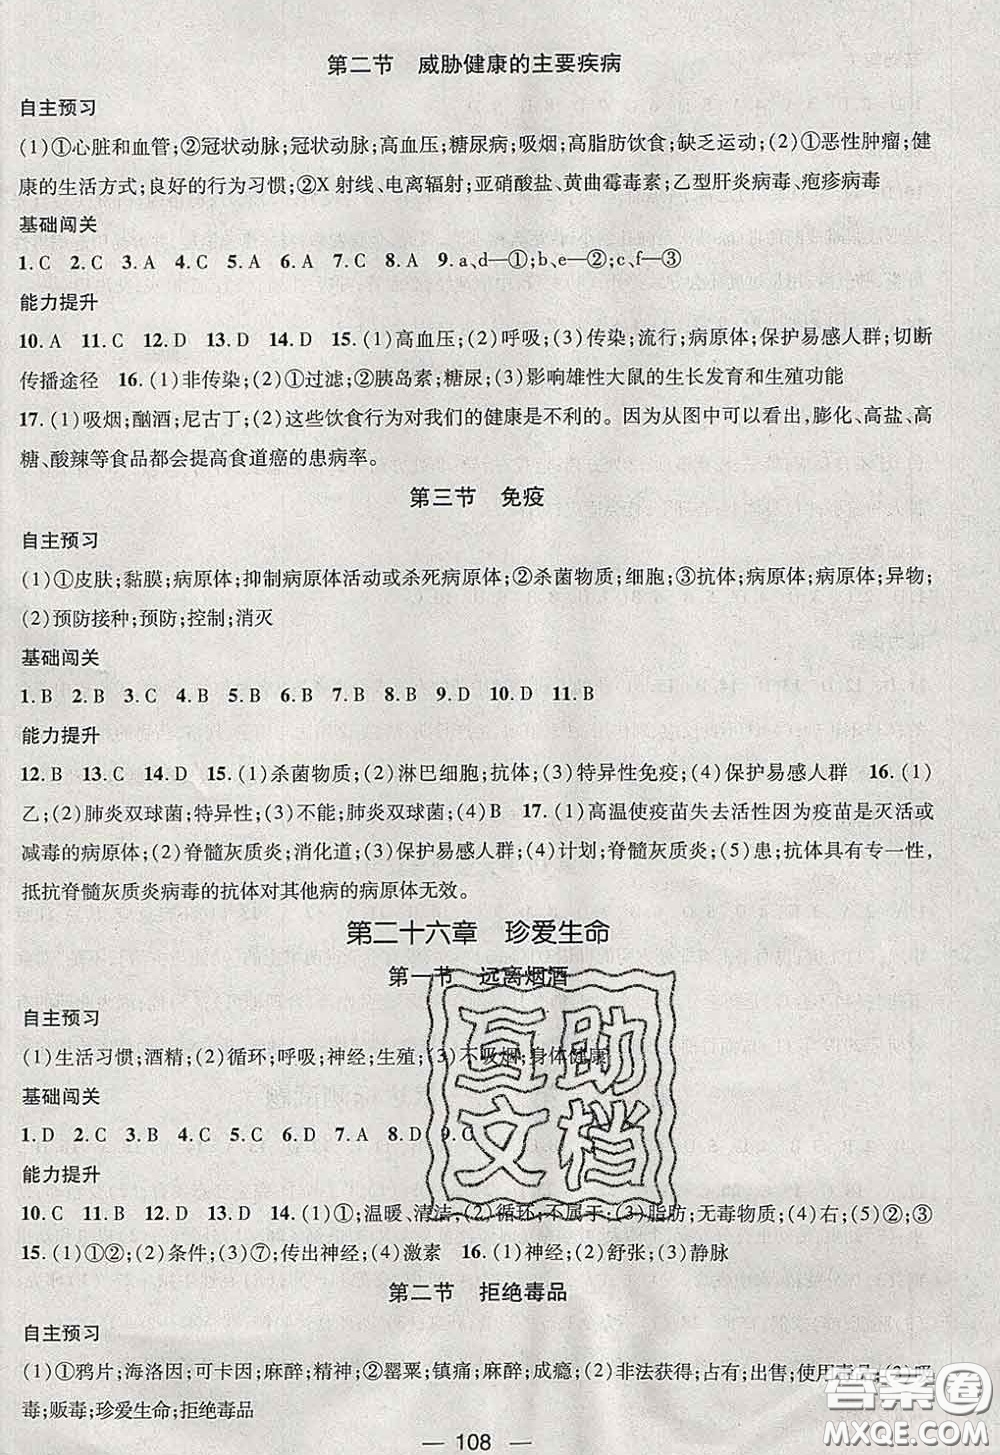 第二节　威胁健康的主要疾病
自主预习
(1)①心脏和血管;②冠状动脉;冠状动脉;高血压;糖尿病;吸烟;高脂肪饮食;缺乏运动;(2)①恶性肿瘤;健
康的生活方式;良好的行为习惯;②X 射线、电离辐射;亚硝酸盐、黄曲霉毒素;乙型肝炎病毒、疱疹病毒
基础闯关
1. C　2. C　3. A　4. C　5. A　6. A　7. C　8. A　9. a、d—①;b、e—②;c、f—③
能力提升
10. A　11. C　12. D　13. D　14. D　15. (1)高血压;(2)呼吸;(3)传染;流行;病原体;保护易感人群;切断
传播途径　16. (1)非传染;(2)①过滤;②胰岛素;糖尿;(3)影响雄性大鼠的生长发育和生殖功能
17. (1)吸烟;酗酒;尼古丁;(2)这些饮食行为对我们的健康是不利的。因为从图中可以看出,膨化、高盐、高
糖、酸辣等食品都会提高食道癌的患病率。
第三节　免疫
自主预习
(1)①皮肤;黏膜;病原体;抑制病原体活动或杀死病原体;②杀菌物质;细胞;③抗体;病原体;病原体;异物;
(2)预防接种;预防;控制;消灭
基础闯关
1. B　2. B　3. C　4. B　5. B　6. B　7. B　8. B　9. D　10. D　11. B
能力提升
12. B　13. C　14. D　15. (1)杀菌物质;(2)淋巴细胞;抗体;(3)特异性免疫;(4)保护易感人群　16. (1)
乙;(2)肺炎双球菌;特异性;(3)不能;肺炎双球菌;(4)B　17. (1)高温使疫苗失去活性因为疫苗是灭活或
减毒的病原体;(2)脊髓灰质炎;消化道;(3)保护易感人群;(4)计划;脊髓灰质炎;(5)患;抗体具有专一性,
抵抗脊髓灰质炎病毒的抗体对其他病的病原体无效。
第二十六章　珍爱生命
第一节　远离烟酒
自主预习
(1)生活习惯;酒精;(2)循环;呼吸;神经;生殖;(3)不吸烟;身体健康
基础闯关
1. D　2. C　3. B　4. C　5. C　6. D　7. A　8. D　9. C
能力提升
10. C　11. B　12. D　13. D　14. (1)①;温暖、清洁;(2)循环;不属于;(3)脂肪;无毒物质;(4)右;(5)②;③
15. (1)①②;(2)条件;(3)⑦;传出神经;(4)激素　16. (1)神经;(2)舒张;(3)静脉
第二节　拒绝毒品
自主预习
(1)①鸦片;海洛因;可卡因;麻醉;精神;②罂粟;镇痛;麻醉;成瘾;(2)非法获得;占有;出售;使用毒品;(3)吸
毒;贩毒;珍爱生命;拒绝毒品
— 108 —
互助
文档
答案圈
MXQE.COM